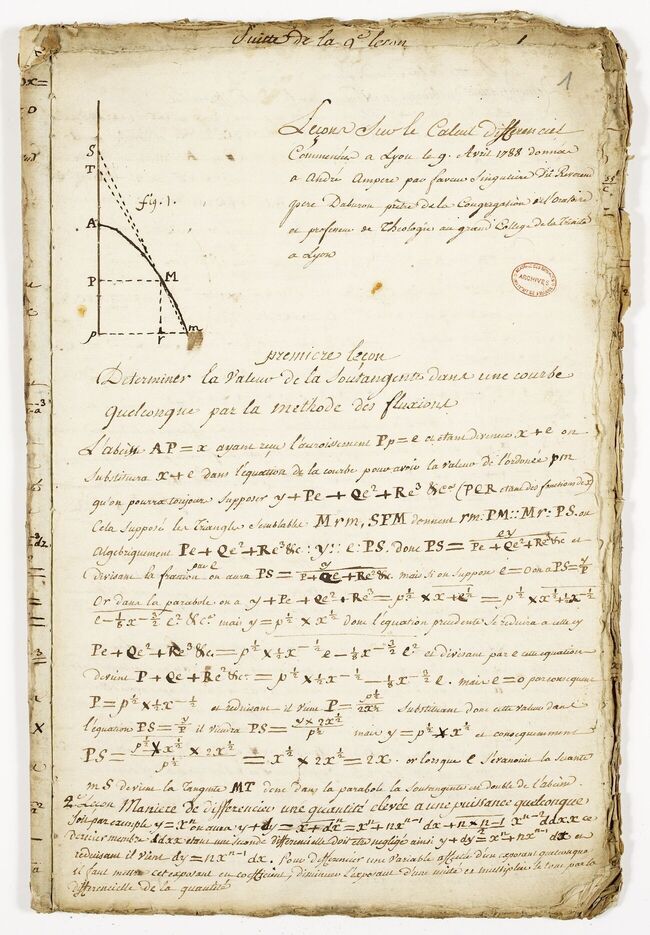 Suitte de la 9e leson
1
Leçons Sur le Calcul differenciel
Commencées a Lyon le 9. Avril 1788 donnée
a André Ampere par faveur Singuliere Du Reverend
pere Daburon prêtre de la Congregation de l'oratoire
et professeur de Theologie au grand College de la Trinité
a Lyon
ARCHIVES
S
T
fig. 1.
A
P
M
p
r
m
premiere leçon
Determiner la valeur de la Soutangente dans une courbe
quelconque par la methode des fluxions
L'abcisse AP = x ayant reçu l'accroissement Pp = e et etant devenue x + e on
Substituera x + e dans l'équation de la courbe pour avoir la valeur de l'ordonée pm
qu'on pourra toujours Supposer y + Pe + Qe² + Re³ &ca (PQR etant des fonctions de x)
Cela Supposé les Triangles Semblables Mrm, SPM donnent rm : PM :: Mr : PS. ou
Algebriquement Pe + Qe² + Re³ &c : y :: e : PS. donc PS = ey / Pe + Qe² + Re³ &c et
divisant la fraction par e on aura PS = y / P + Qe + Re² &c. mais Si on Suppose e = 0 on a PS = y/P
Or dans la parabole on a y + Pe + Qe² + Re³ = p½ × x + e½ = p½ × x½ + ½ x-½
e - ⅛ x-3/2 e² &ca mais y = p½ × x½ donc l'equation precedente Se reduira a celle cy
Pe + Qe² + Re³ &c. = p½ × ½ x-½ e - ⅛ x-3/2 e² et divisant par e cette equation
devient P + Qe + Re² &c = p½ × ½ x-½ - ⅛ x-3/2 e. mais e = 0 par consequent
P = p½ × ½ x-½ et reduisant il vient P = p½ / 2x½ Substituant donc cette valeur dans
l'équation PS = y/P il viendra PS = y × 2x½ / p½ mais y = p½ × x½ et consequemment
PS = p½ × x½ / p½ × 2x½ = x½ × 2x½ = 2x. or lorsque e S'evanouit la Secante
mS devient la Tangente MT donc dans la parabole la Soutangente est double de l'abcisse.
2e Leçon Maniere de differencier une quantité elevée a une puissance quelconque
Soit par exemple y = xn on aura y + dy = x + dxn = xn + nxn-1 dx + n × n-1 / 2 xn-2 ddxx ce
dernier membre ddxx etant une seconde differentielle doit etre negligé ainsi y + dy = xn + nxn-1 dx et
reduisant il vient dy = nxn-1 dx. Pour differencier une variable affectée d'un exposant quelconque
il faut mettre cet exposant en coefficient, diminuer l'exposant d'une unité et multiplier le tout par la
differencielle de la quantité